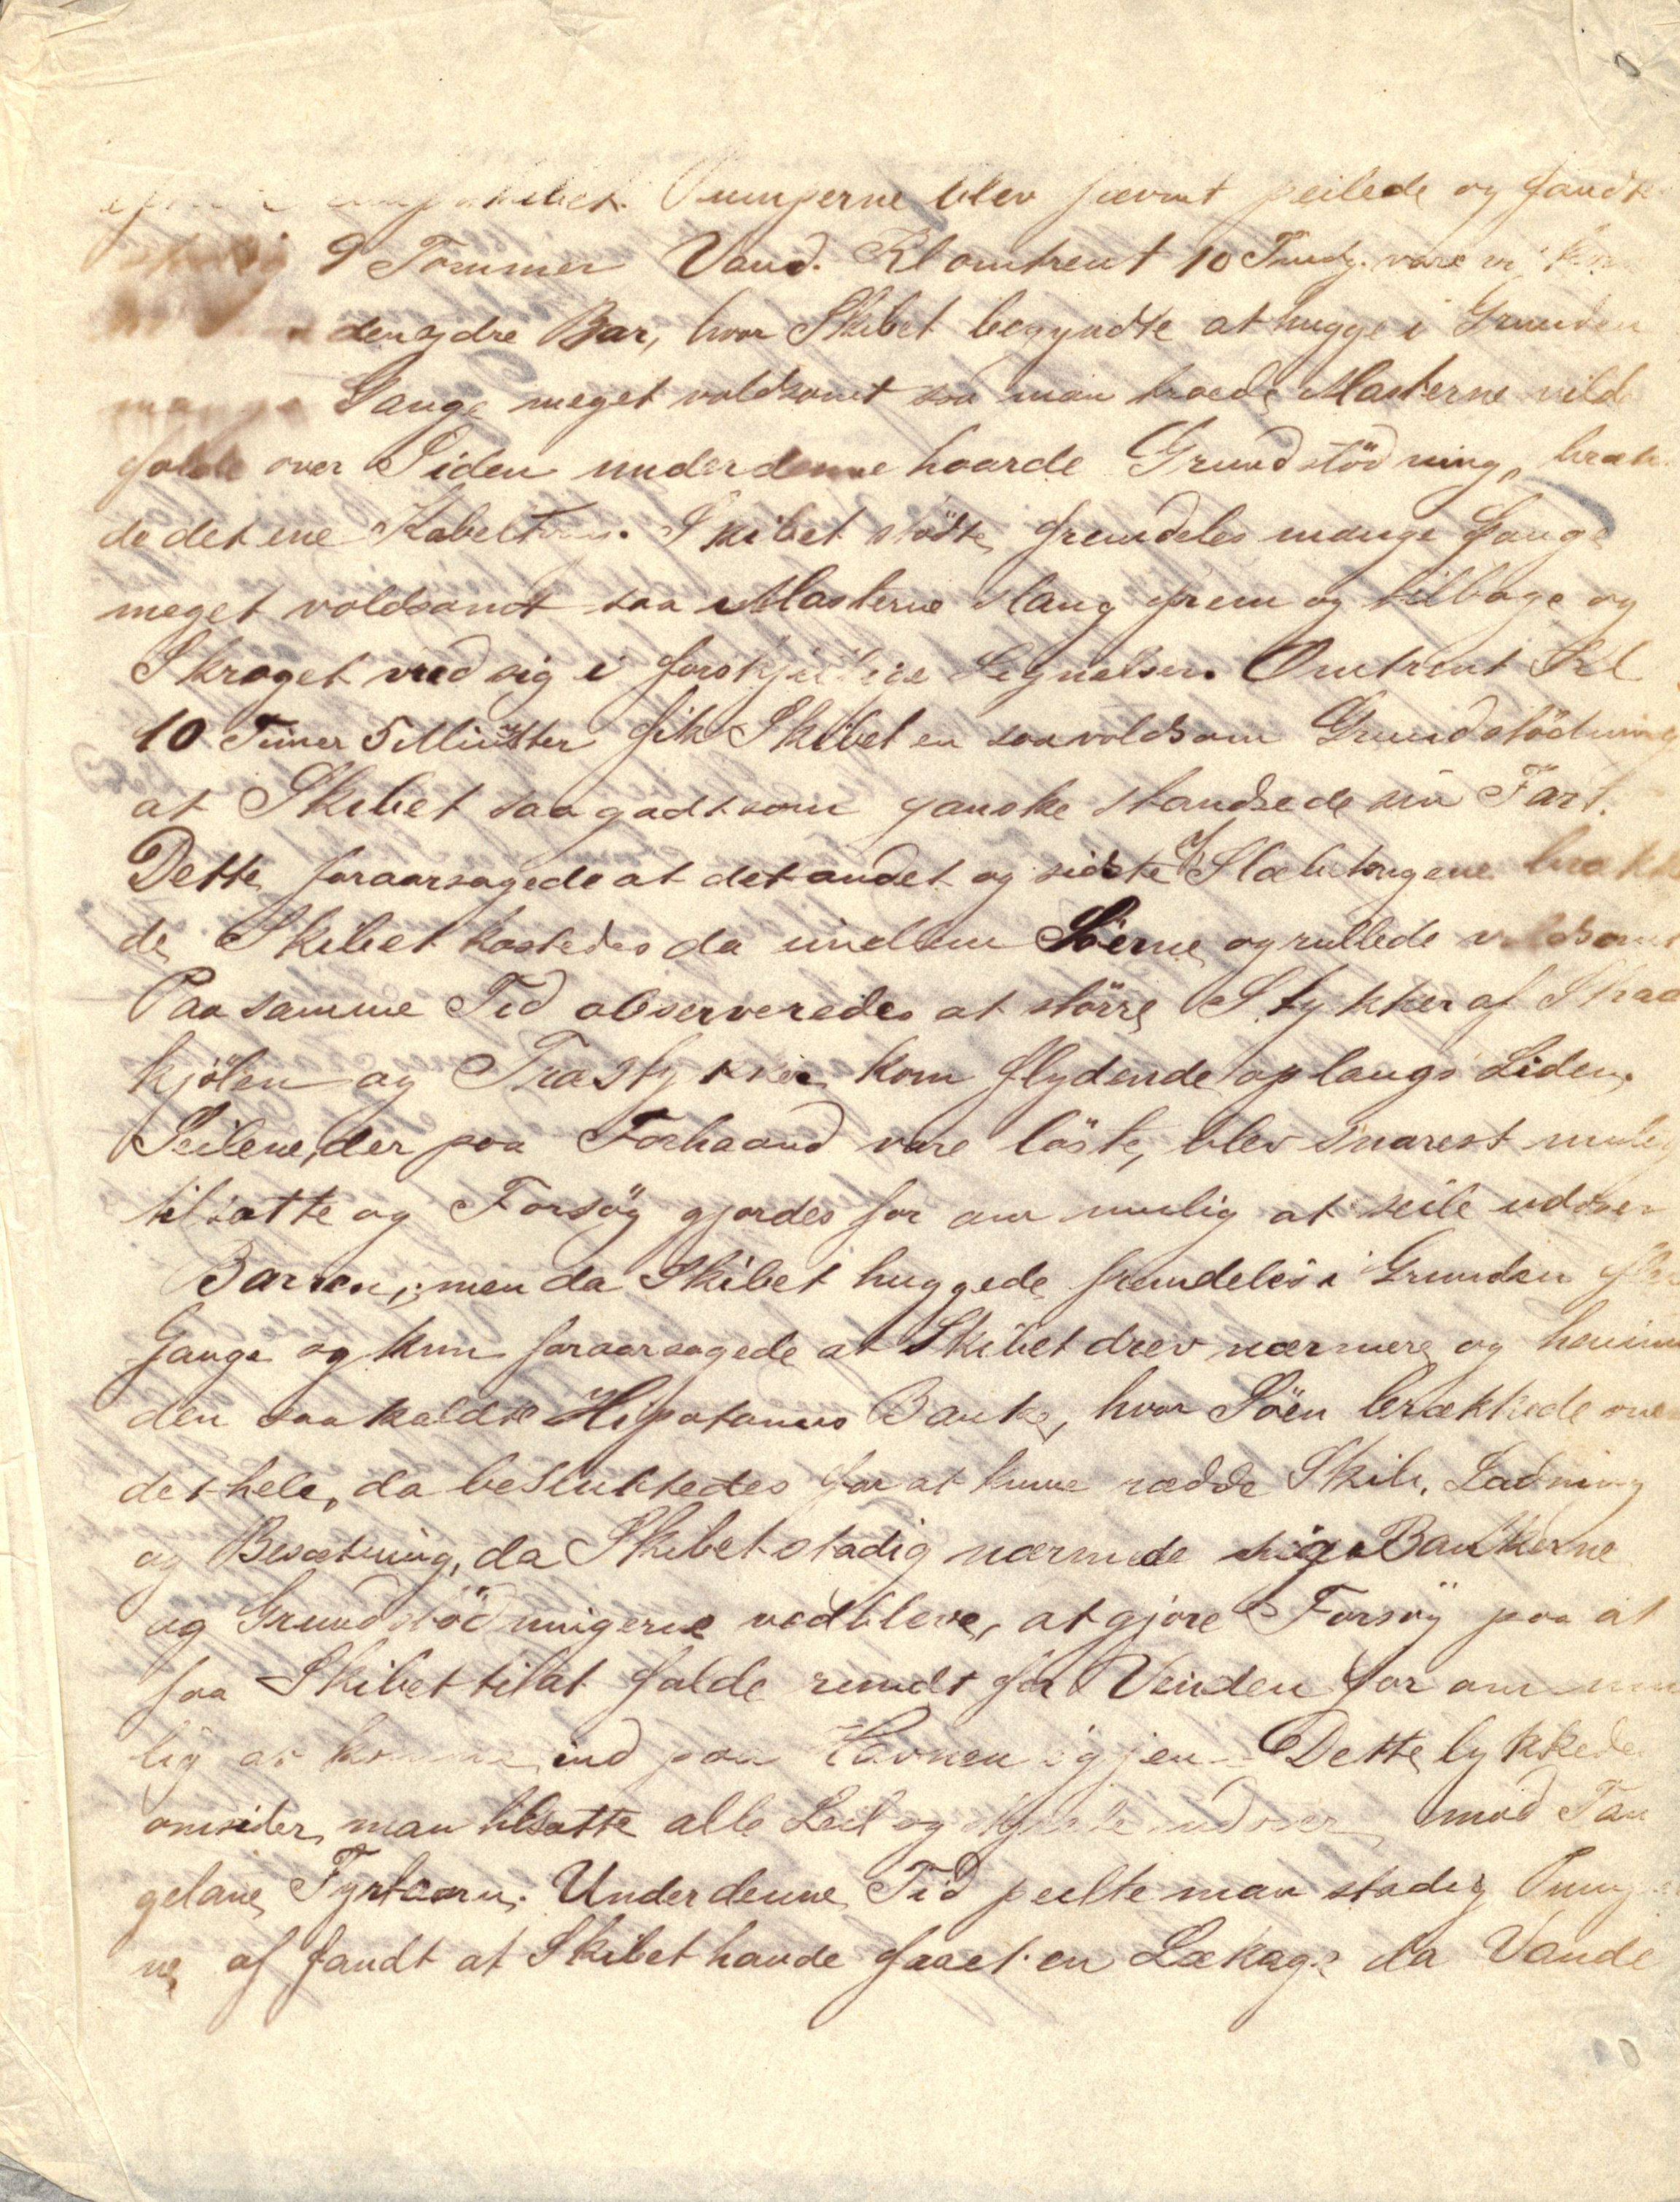 Pumperne blev jævnt peilede og fandt
9 Tommer Vand. Kl omtrent 10 vare vi
den ydre Bar, hvor Skibet begyndte at hugge i Grunden
Gange meget voldsomt saa man troede Masterne vilde
falde over Siden under denne haarde Grundstödning, bræk
de det ene Kabeltoug. Skibet stödte fremdeles mange Gange
meget voldsomt saa Masterne slang frem og tilbage og
Skroget vred sig i forskjellige Omtrent Kl
10 Timer 5 Minutter fik Skibet en saa voldsom Grundstödning
at Skibet saa godt som ganske standsede sin Fart.
Dette foraarsagede at det andet og sidste af Slæbetougene bræk
de, Skibet kastedes da imellem Söerne og rullede voldsomt
Paa samme Tid observeredes at större Stykker af Straa
kjölen og Træstykker kom flydende op langs Siden.
Seilene, der paa Forhaand vare löste, blev snarest mulig
tilsatte og Forsög gjordes for om mulig at seile udover
Barren, men da Skibet huggede fremdeles i Grunden flere
Gange og kun foraarsagede at Skibet drev nærmere og henimod
den saakaldte Hipotamus Banke, hvor Söen brækkede over
det hele, da besluttedes for at kunne rædde Skib, Ladning
og Besætning, da Skibet stadig nærmede sig Bankerne
og Grundstödningerne vedbleve, at gjöre Forsög paa at
faa Skibet til at falde rundt for Vinden for om mu
lig at komme ind paa Havnen igjen. Dette lykkedes
omsider, man tilsatte alle Seil og mod Tan
gelane Fyrtaarn. Under denne Tid peilte man stadig Pumper
ne og fandt at Skibet havde faaet en Lækage da Vande